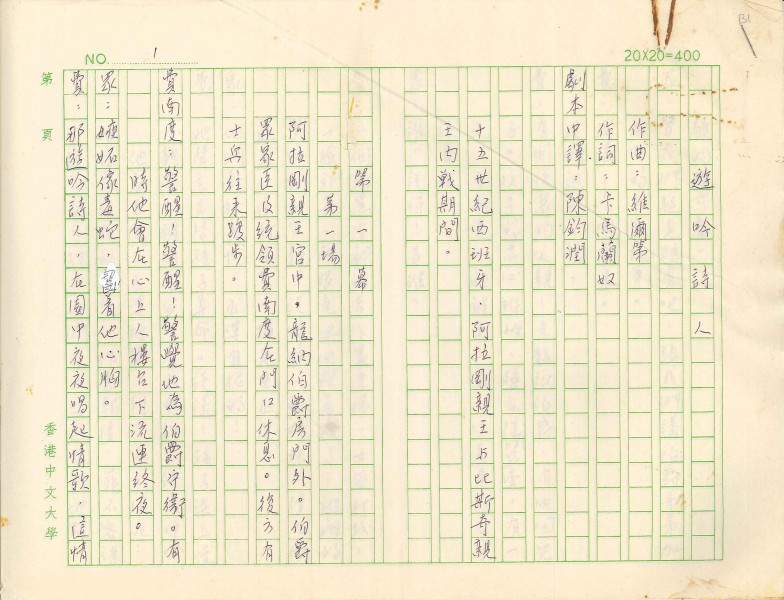 B1
NO. 1
20X20=400
第 頁
香港中文大學
遊吟詩人
作曲：維爾第
作詞：卡馬蘭奴
劇本中譯：陳鈞潤
十五世紀西班牙．阿拉剛親王与比斯奇親
王內戰期間。
第一幕
第一場
阿拉剛親王宮中。龍納伯爵房門外。伯爵
眾家臣及統領費南度在門口休息。後方有
士兵往來踱步。
費南度：警醒！警醒！警覺地為伯爵守衛。有
時他會在心上人樓台下流連終夜。
眾：嫉妬像毒蛇．嚙着他心胸。
費：那遊吟詩人．在園中夜夜唱起情歌．這情